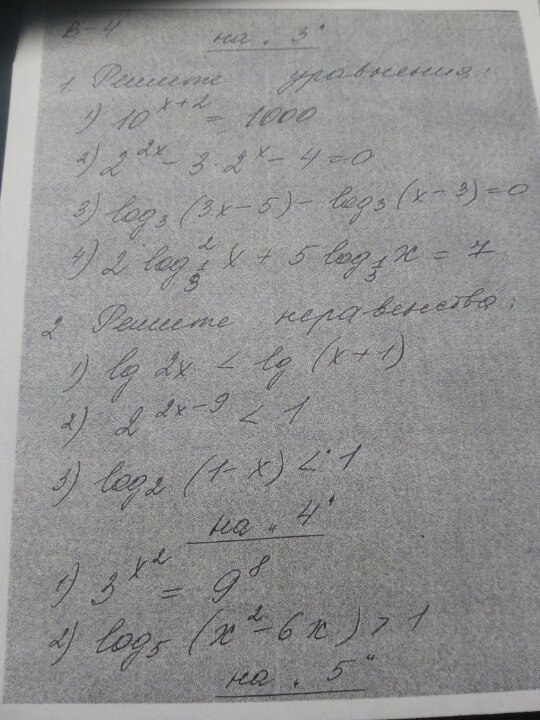 В-4
на „3“
1. Решите уравнения:
1) 10^{x+2} = 1000
2) 2^{2x} - 3·2^{x} - 4 = 0
3) log₃ (3x-5) - log₃ (x-3) = 0
4) 2 log²_{1/3} x + 5 log_{1/3} x = 7
2 Решите неравенства:
1) lg 2x < lg (x+1)
2) 2^{2x-9} < 1
3) log₂ (1-x) < 1
на „4“
1) 3^{x²} = 9⁸
2) log₅ (x²-6x) > 1
на „5“